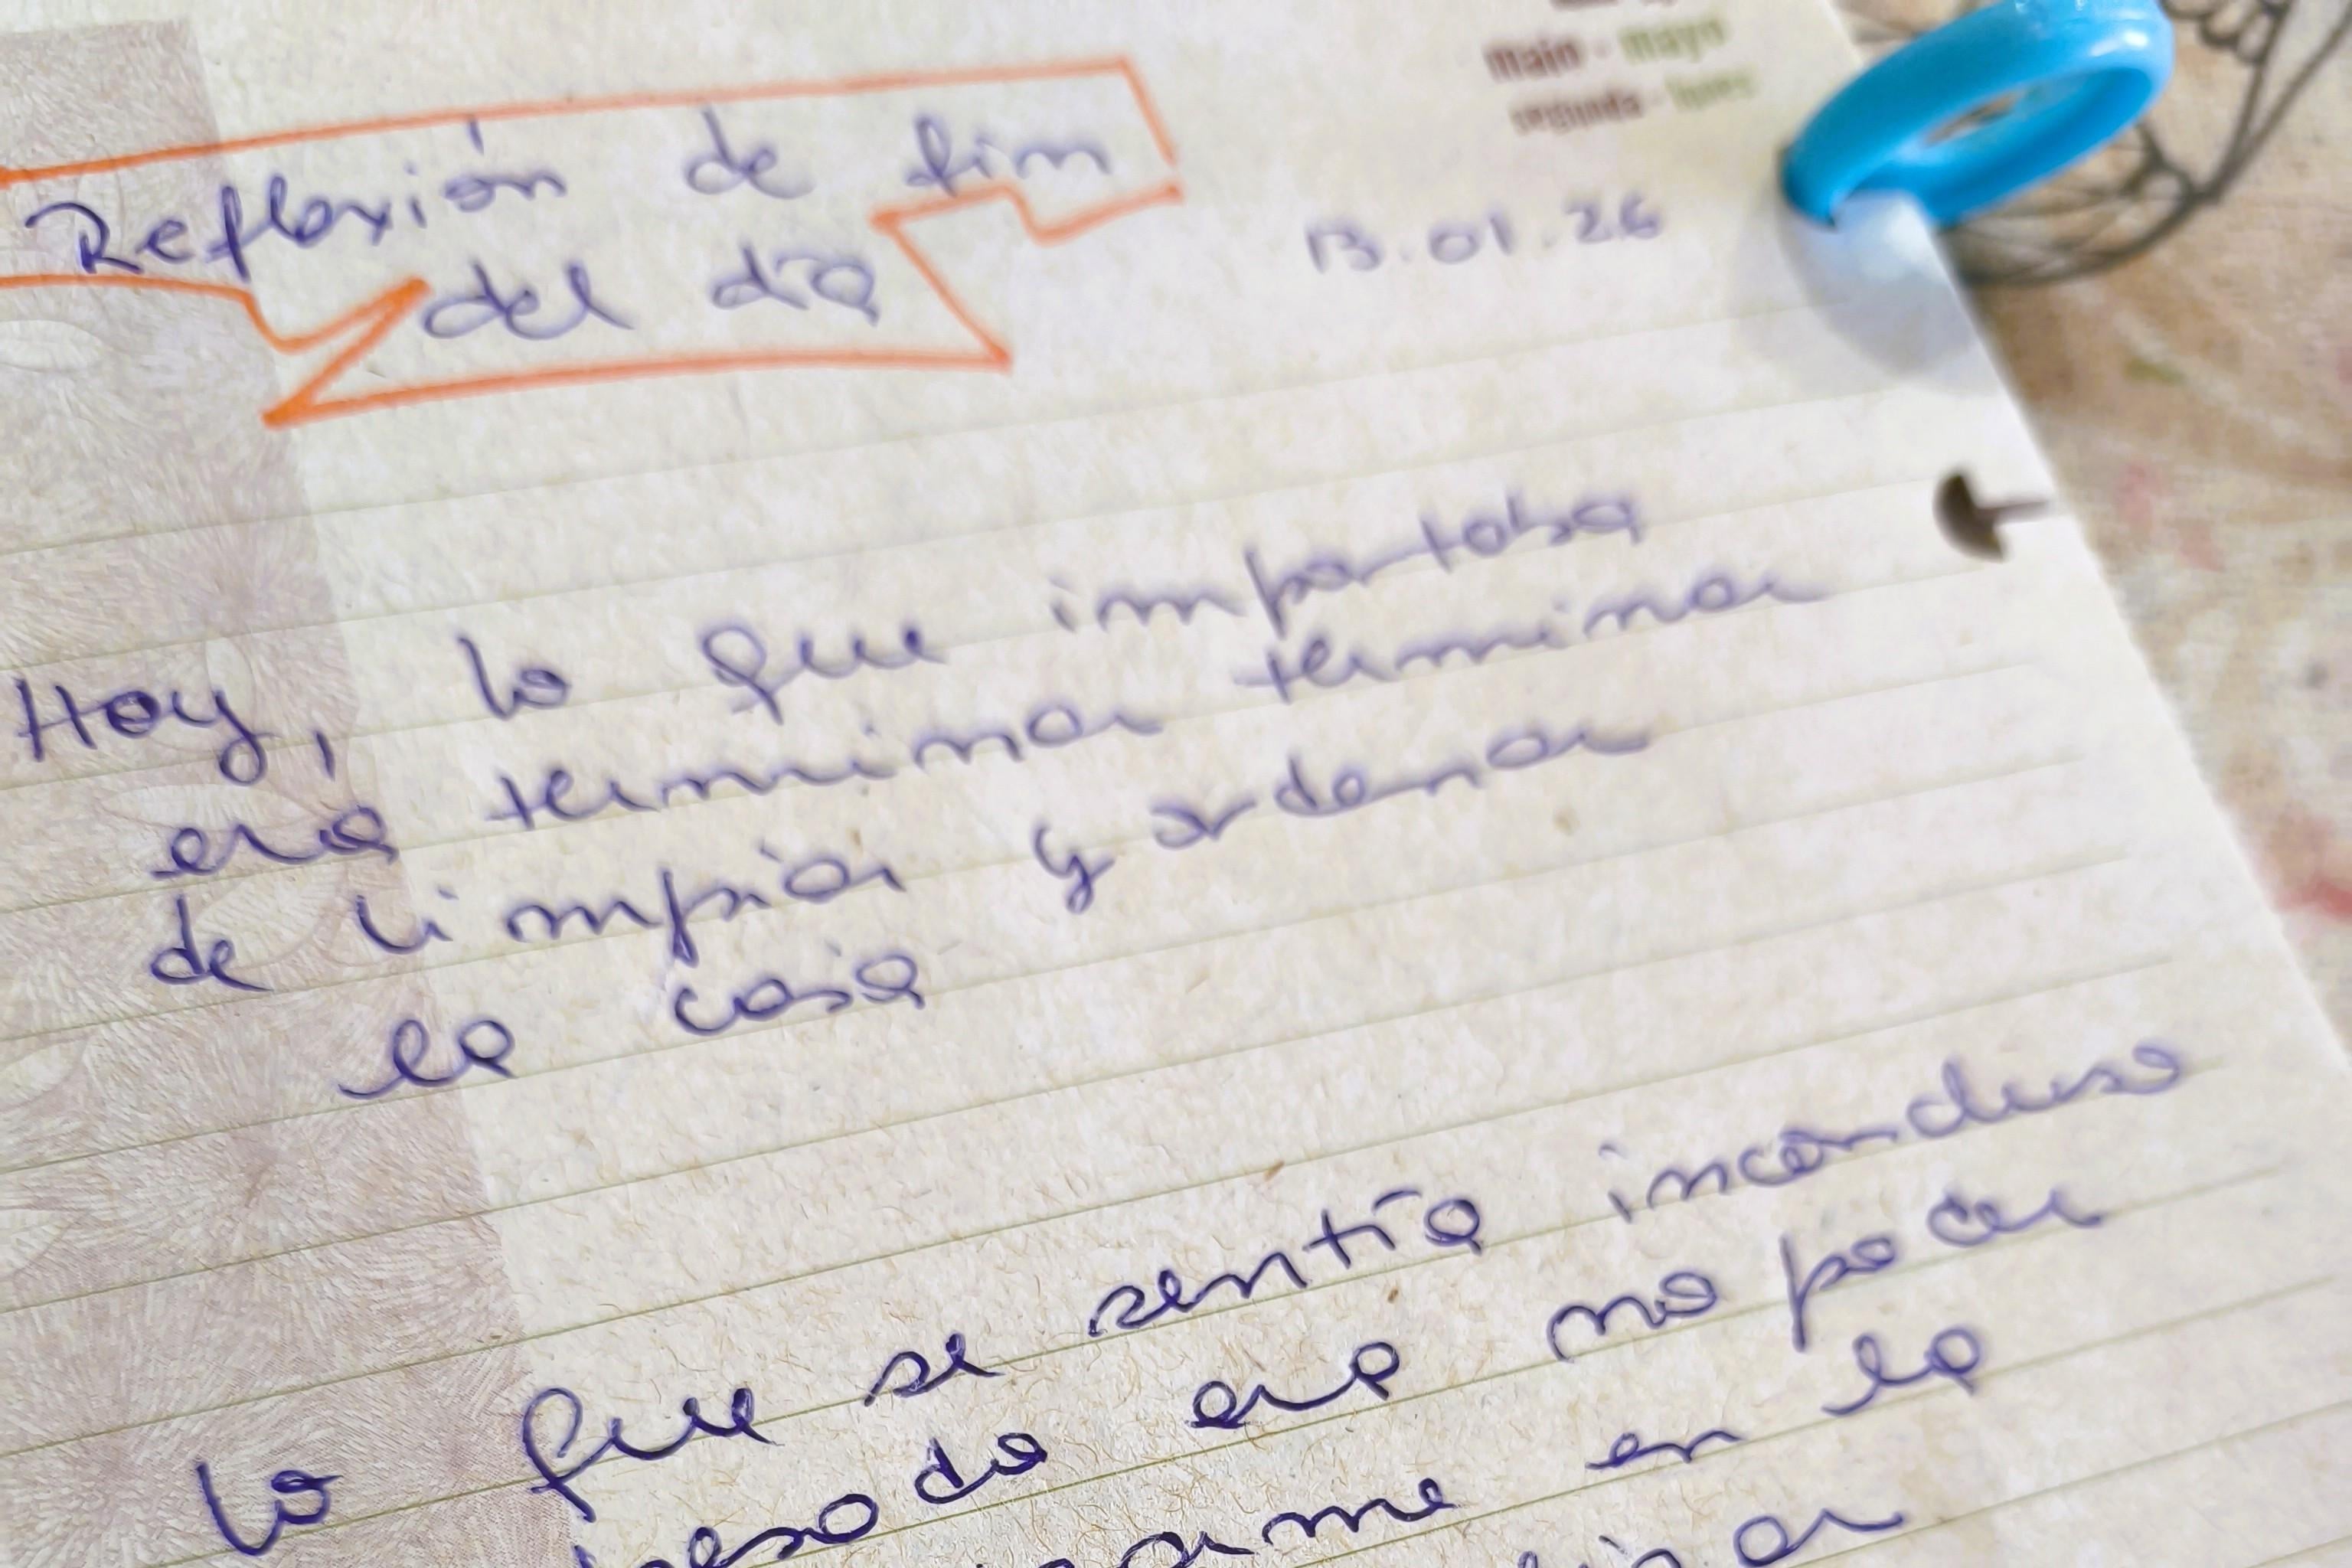 maio - mayo
segunda - lunes
Reflexión de fim
del día
13.01.26
Hoy, lo que importaba
era terminar terminar
de limpiar y ordenar
la casa
lo que se sentía inconcluso
era no poder
en la